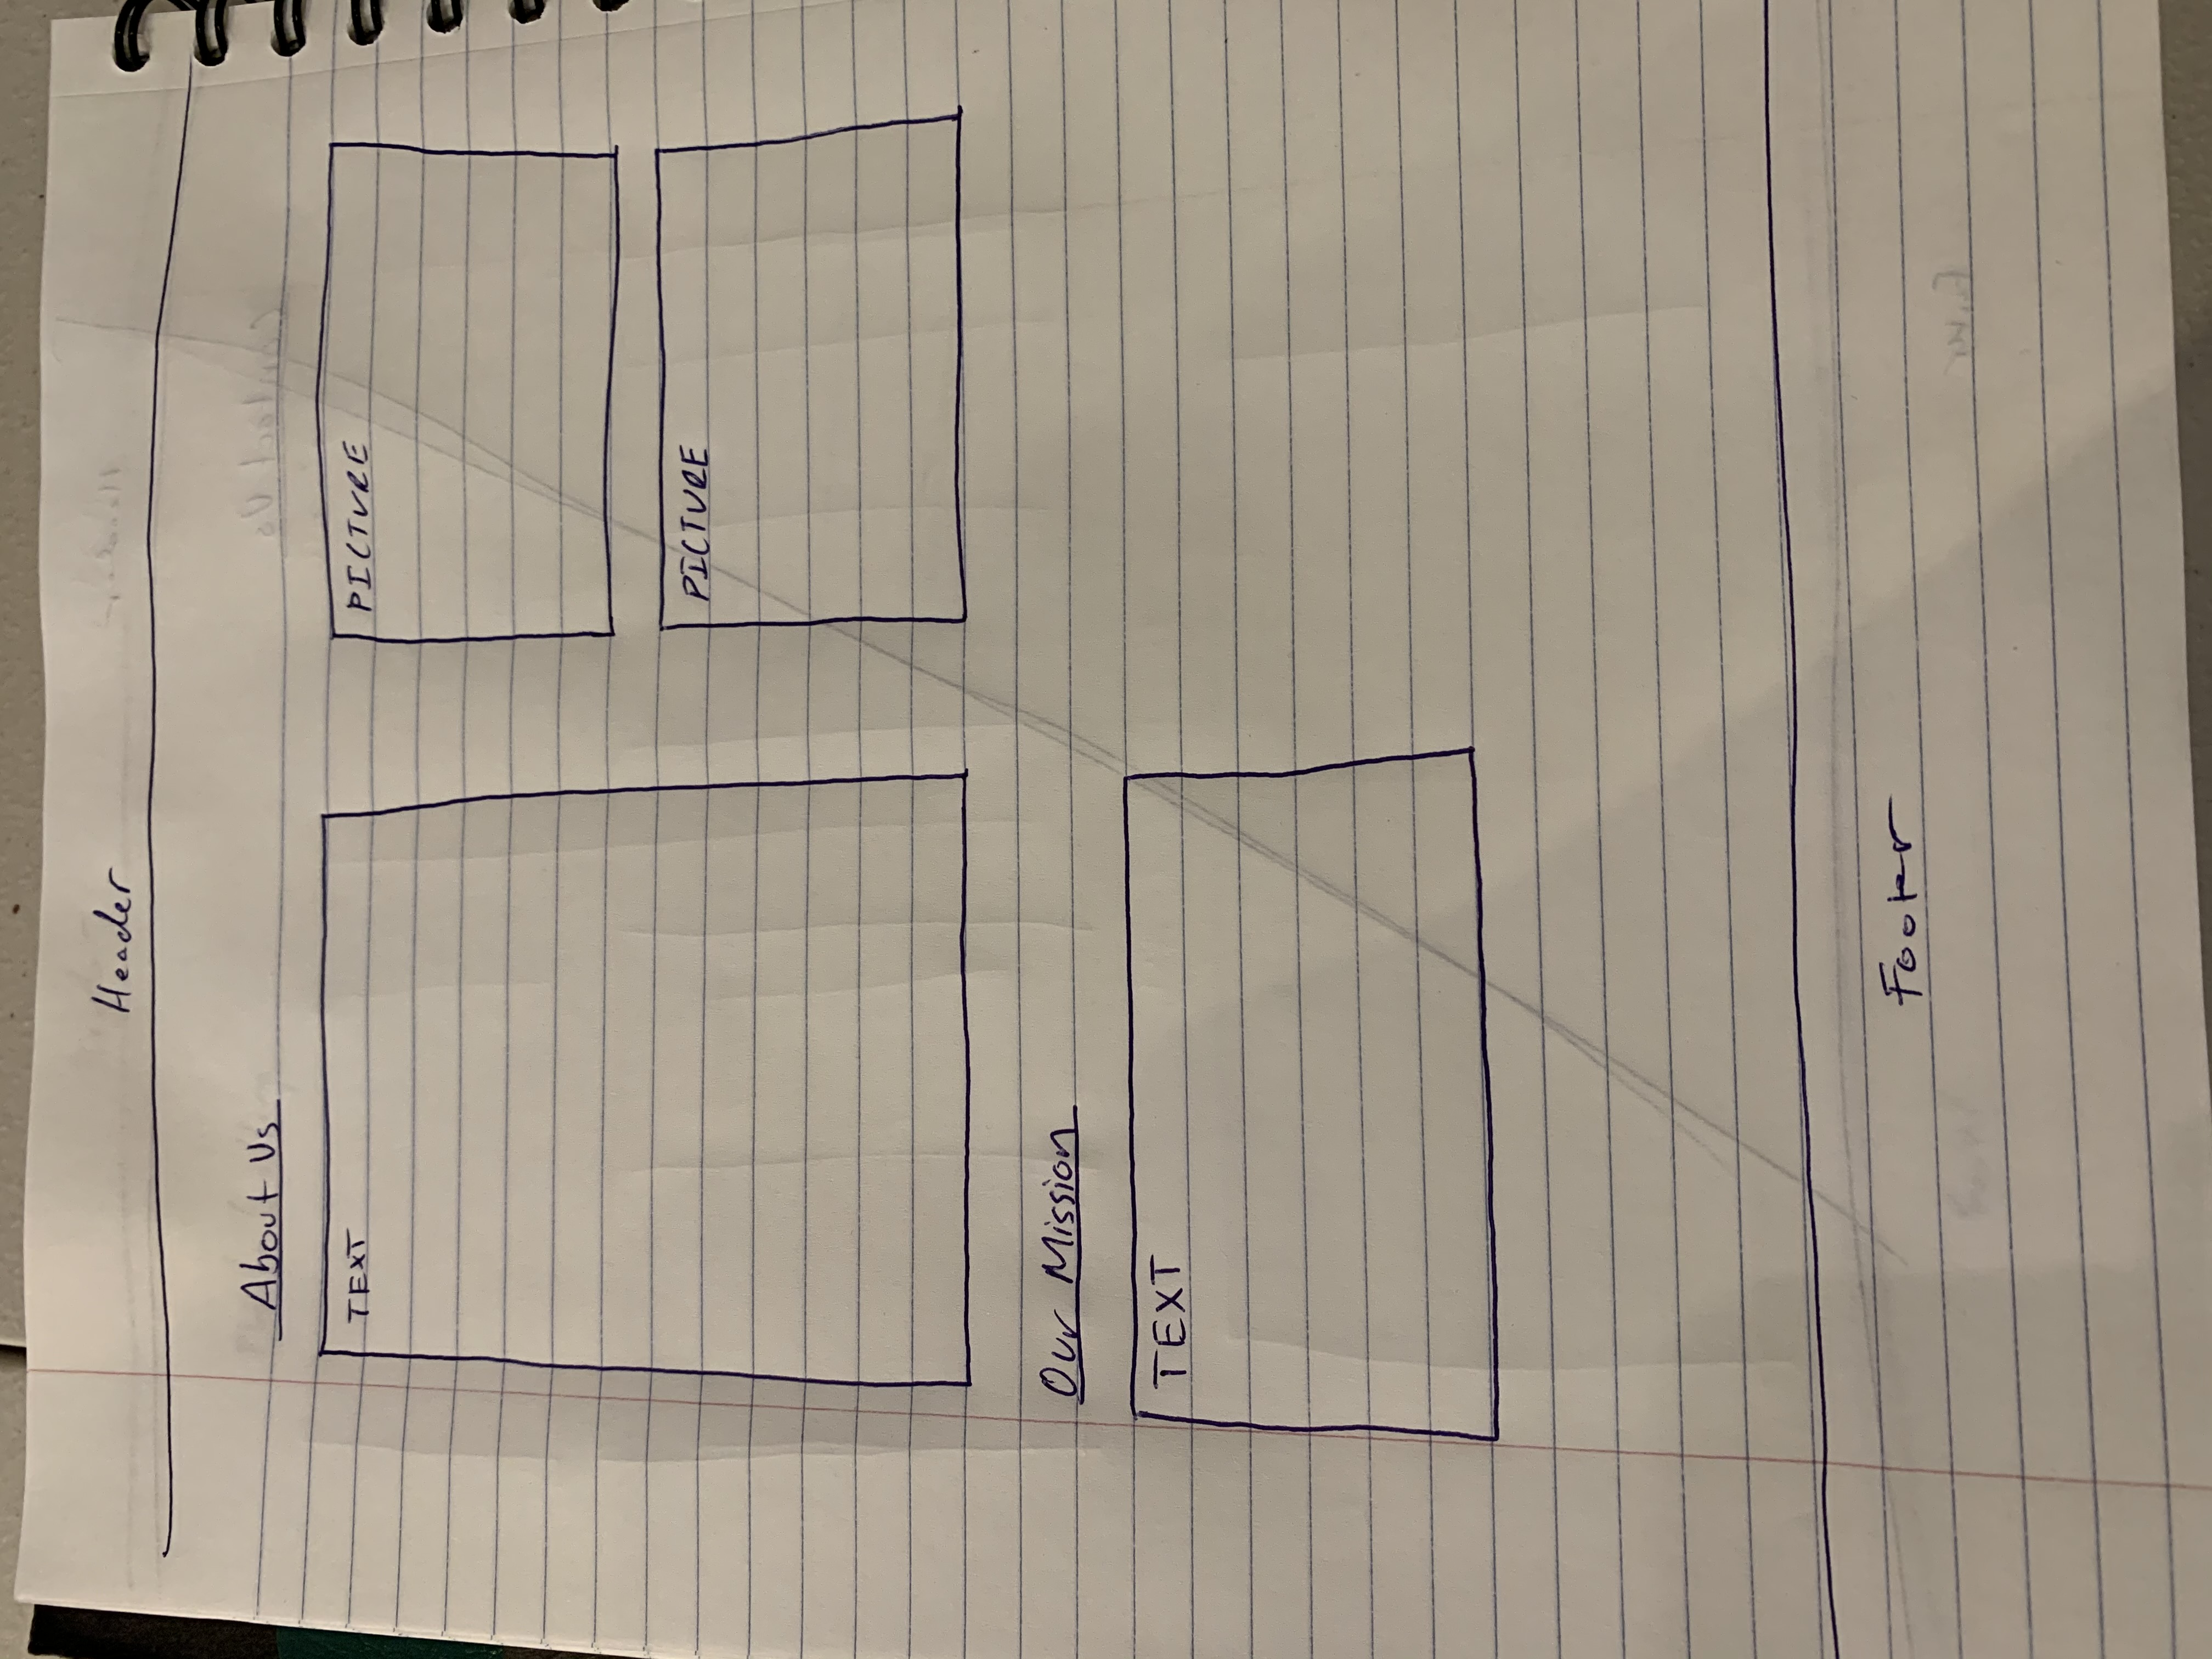 Header
About Us
TEXT
PICTURE
PICTURE
Our Mission
TEXT
Footer